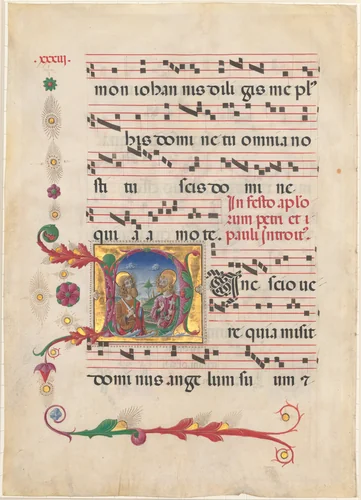 .xxxiii.
mon iohan nis dili gis me plꝰ
his domi ne tu omnia no
sti tu scis do mi ne
qui a a mo te.
In festo aplo
rum petri et i
pauli Introitꝰ
N unc scio ue
re quia misit
dominus ange lum su um ⁊